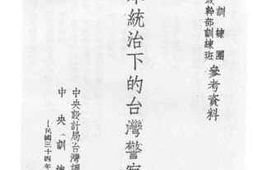 訓練團
幹部訓練班
參考資料
統治下的台灣警察
中央設計局台灣調
中央訓練
民國三十四年